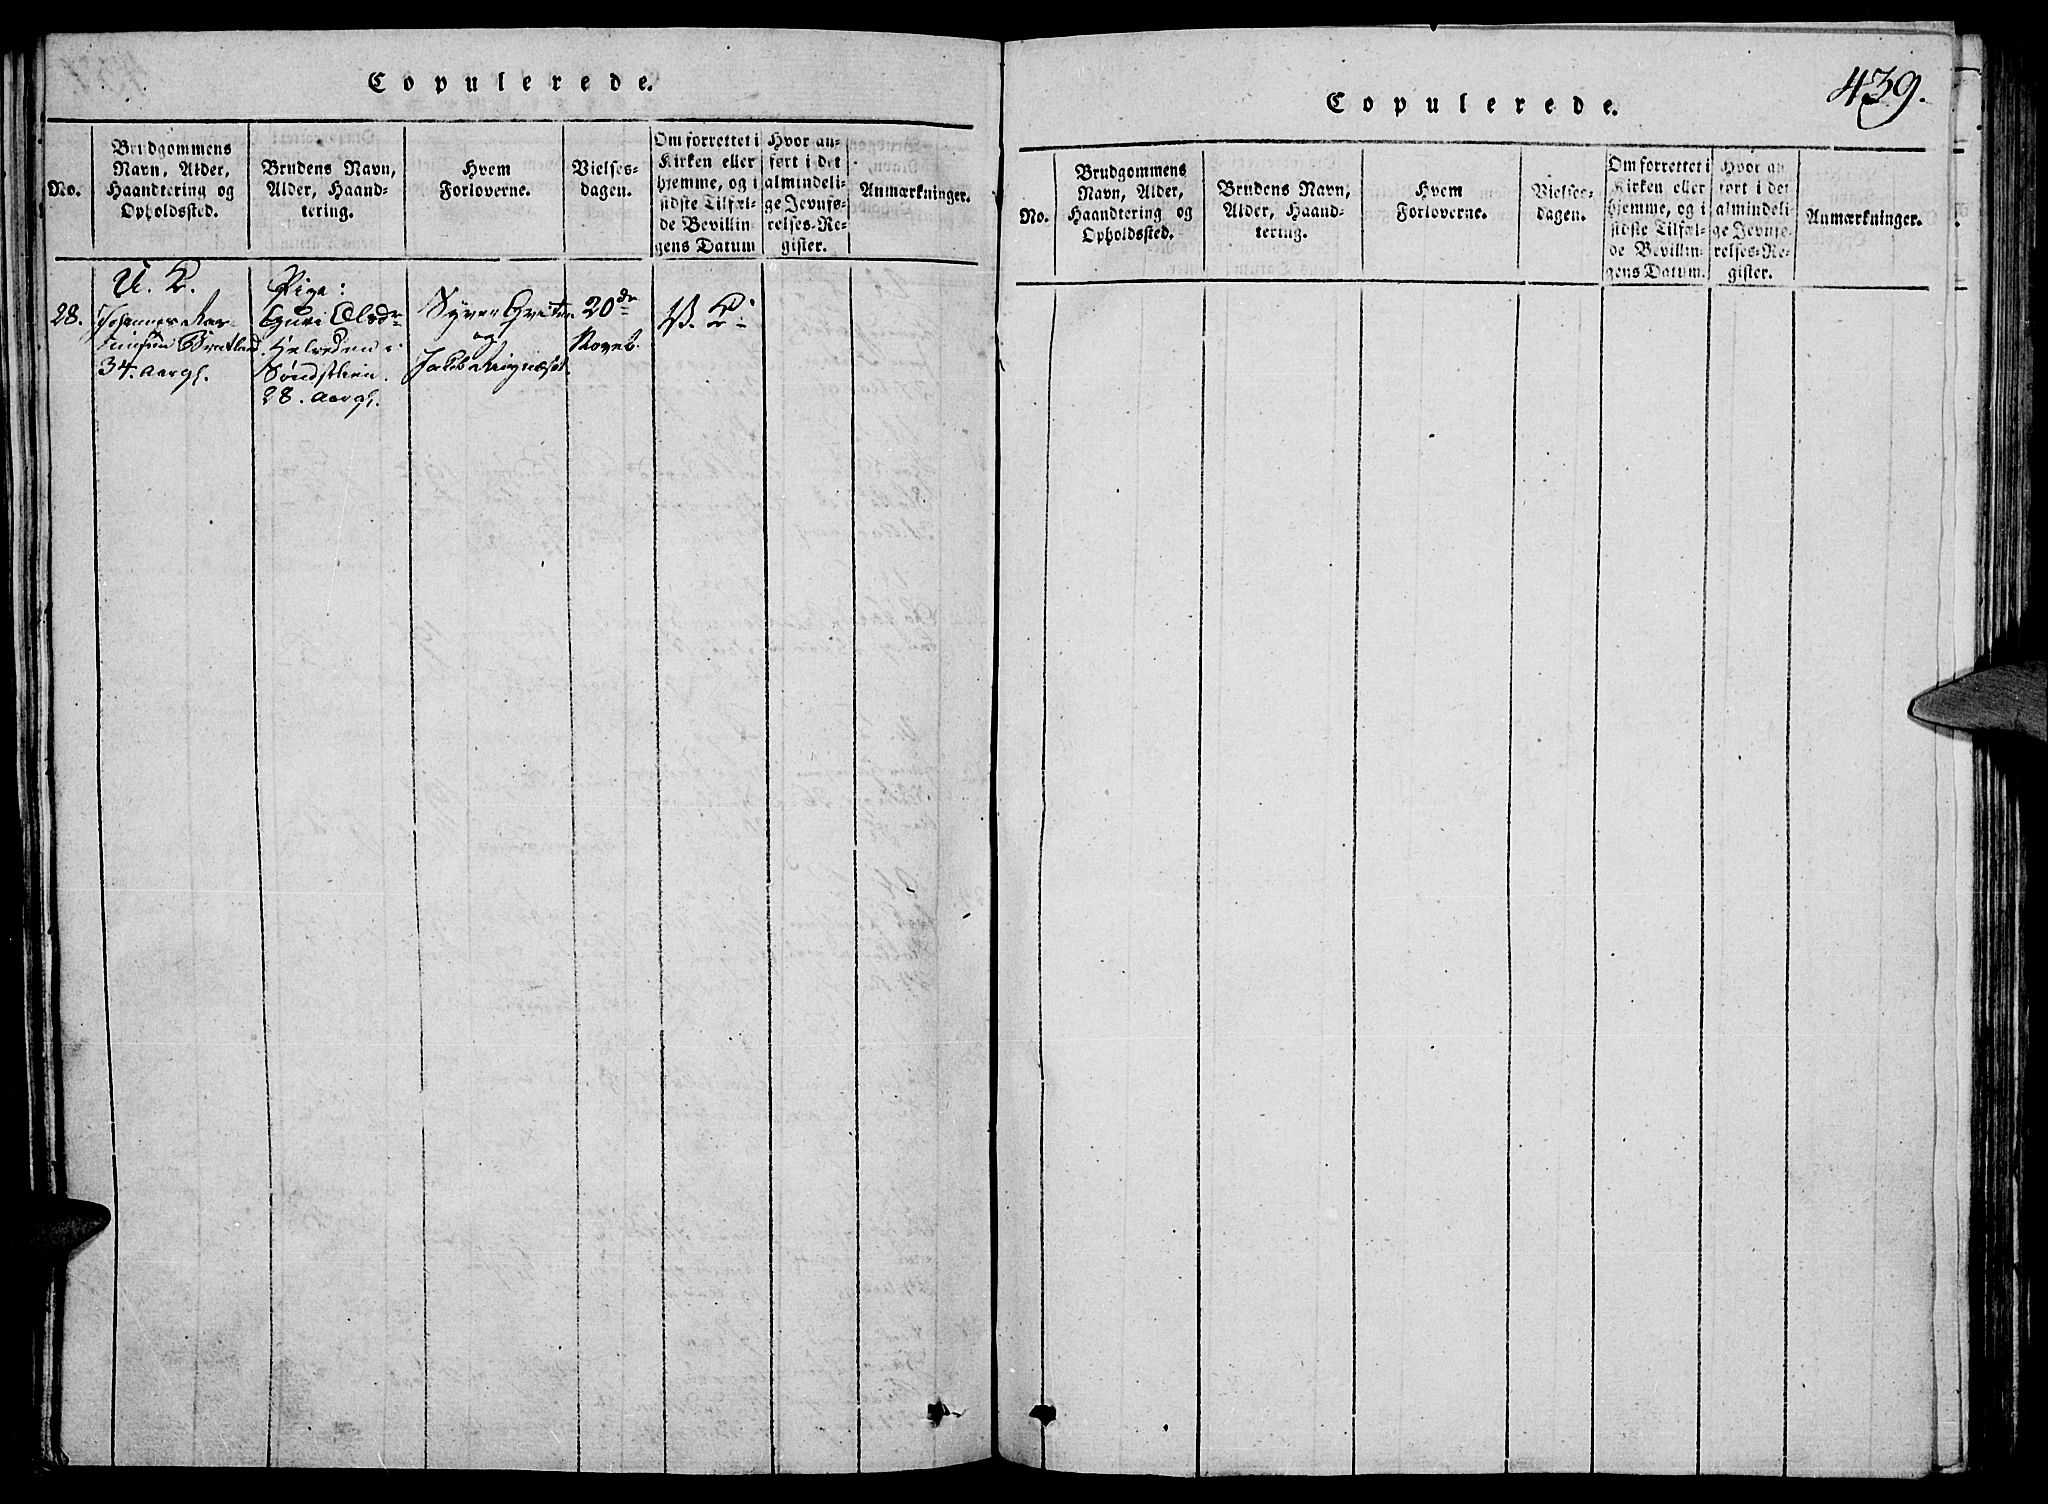 Copulerede.
No.
Brudgommens
Navn, Alder,
Haandtering og
Opholdssted.
Brudens Navn,
Alder, Haand-
tering.
Hvem
Forloverne.
Vielses-
dagen.
Om forrettet i
Kirken eller
hjemme, og i
sidste Tilfæl-
de Bevillin-
gens Datum
Hvor an-
ført i det
almindeli-
ge Jevnfø-
relses-Re-
gister.
Anmærkninger.
28.
U. K.
Johannes
34. Aar gl.
Pige:
Guri
i
28. Aar gl.
Syver
og
Jakob
20de
Noveb.
V. K.
439.
Copulerede.
No.
Brudgommens
Navn, Alder,
Haandtering og
Opholdssted.
Brudens Navn,
Alder, Haand-
tering.
Hvem
Forloverne.
Vielses-
dagen.
Om forrettet i
Kirken eller
hjemme, og i
sidste Tilfæl-
de Bevillin-
gens Datum.
Hvor an
ført i det
almindeli-
ge Jevnfø-
relses-Re-
gister.
Anmærkninger.